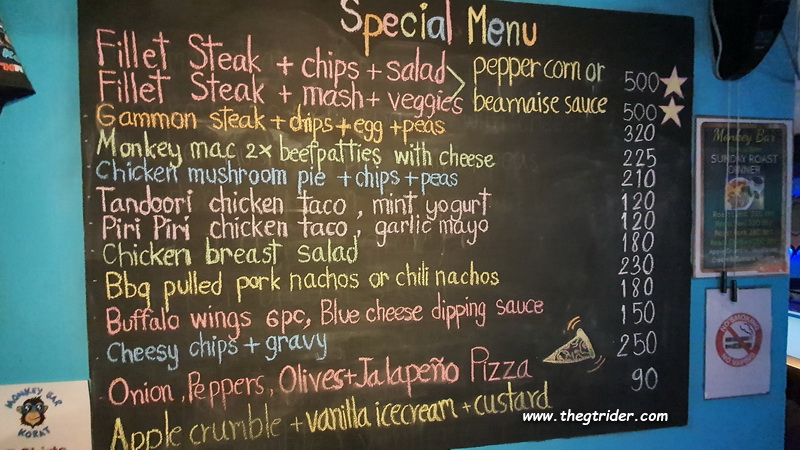 Special Menu
Fillet Steak + chips + salad pepper corn or 500
Fillet Steak + mash + veggies bearnaise sauce 500
Gammon steak + chips + egg + peas 320
Monkey mac 2x beef patties with cheese 225
Chicken mushroom pie + chips + peas 210
Tandoori chicken taco, mint yogurt 120
Piri Piri chicken taco, garlic mayo 120
Chicken breast salad 180
Bbq pulled pork nachos or chili nachos 230
Buffalo wings 6pc, Blue cheese dipping sauce 180
Cheesy chips + gravy 150
Onion, Peppers, Olives + Jalapeño Pizza 250
Apple crumble + vanilla icecream + custard 90
Monkey Bar
SUNDAY ROAST
DINNER
NO SMOKING
MONKEY BAR
KORAT
www.thegtrider.com